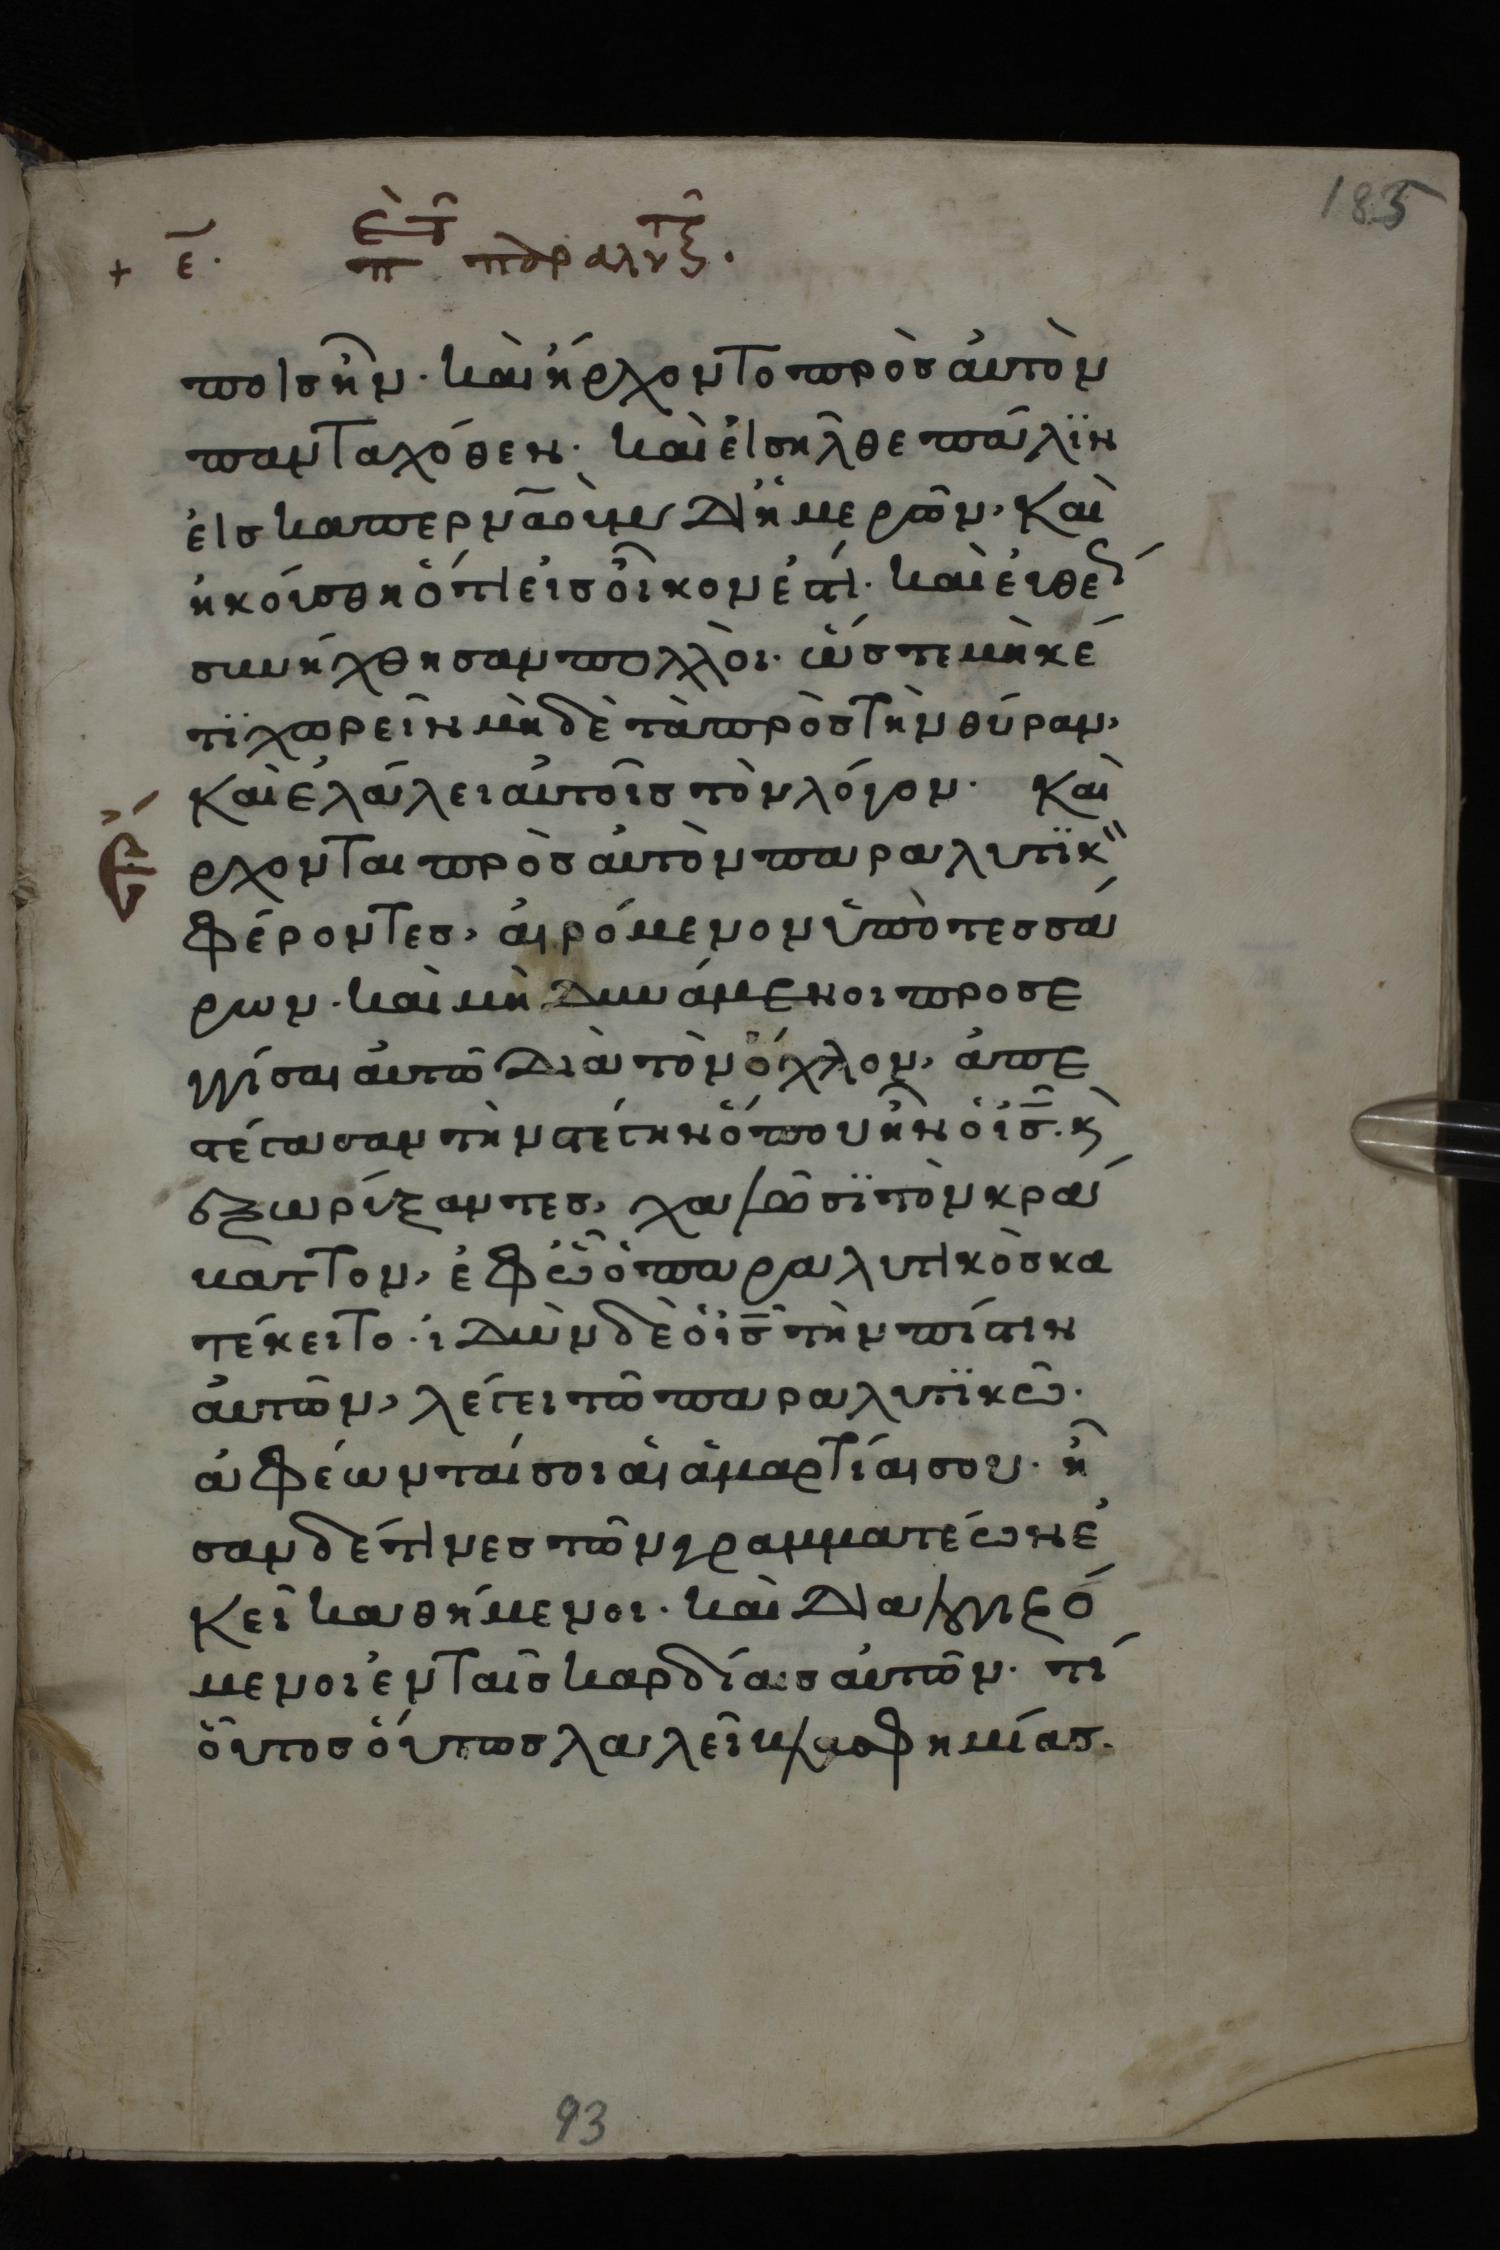 185
+ ε̄. π παραλυτ
ποις ἦν· καὶ ἤρχοντο πρὸς αὐτὸν
πανταχόθεν· καὶ εἰσῆλθε πάλϊν
εἰς καπερναοὺμ δι ἡμερῶν, καὶ
ἠκούσθη ὅτι εἰς οἶκον ἐστί· καὶ εὐθέ
συνήχθησαν πολλοὶ· ὥστε μηκέ
τϊ χωρεῖν μηδὲ τὰ πρὸς τὴν θύραν,
καὶ ἐλάλει αὐτοῖς τὸν λόγον· καὶ
ἔρχονται πρὸς αὐτὸν παραλυτϊκ
φέροντες, αἰρόμενον ὑπὸ τεσσά
ρων· καὶ μὴ δυνάμενοι προσε
γγίσαι αὐτῶ διὰ τὸν ὄχλον, ἀπε
στέγασαν τὴν στέγην ὅπου ἦν ὁ ι̅ς̅. κ
ἐξωρύξαντες, χαλῶσϊ τὸν κρά
βαττον, ἐφ ὧ ὁ παραλυτικὸς κα
τέκειτο· ἰδὼν δὲ ὁ ι̅ς̅ τὴν πίστιν
αὐτῶν, λέγει τῶ παραλυτϊκῶ·
ἀφέωνταί σοι αἱ ἁμαρτίαι σου· ἦ
σαν δέ τινες τῶν γραμματέων ἐ
κεῖ καθήμενοι· καὶ διαλογιζό
μενοι ἐν ταῖς καρδίαις αὐτῶν· τί
οὗτος οὕτως λαλεῖ βλασφημίας.
93